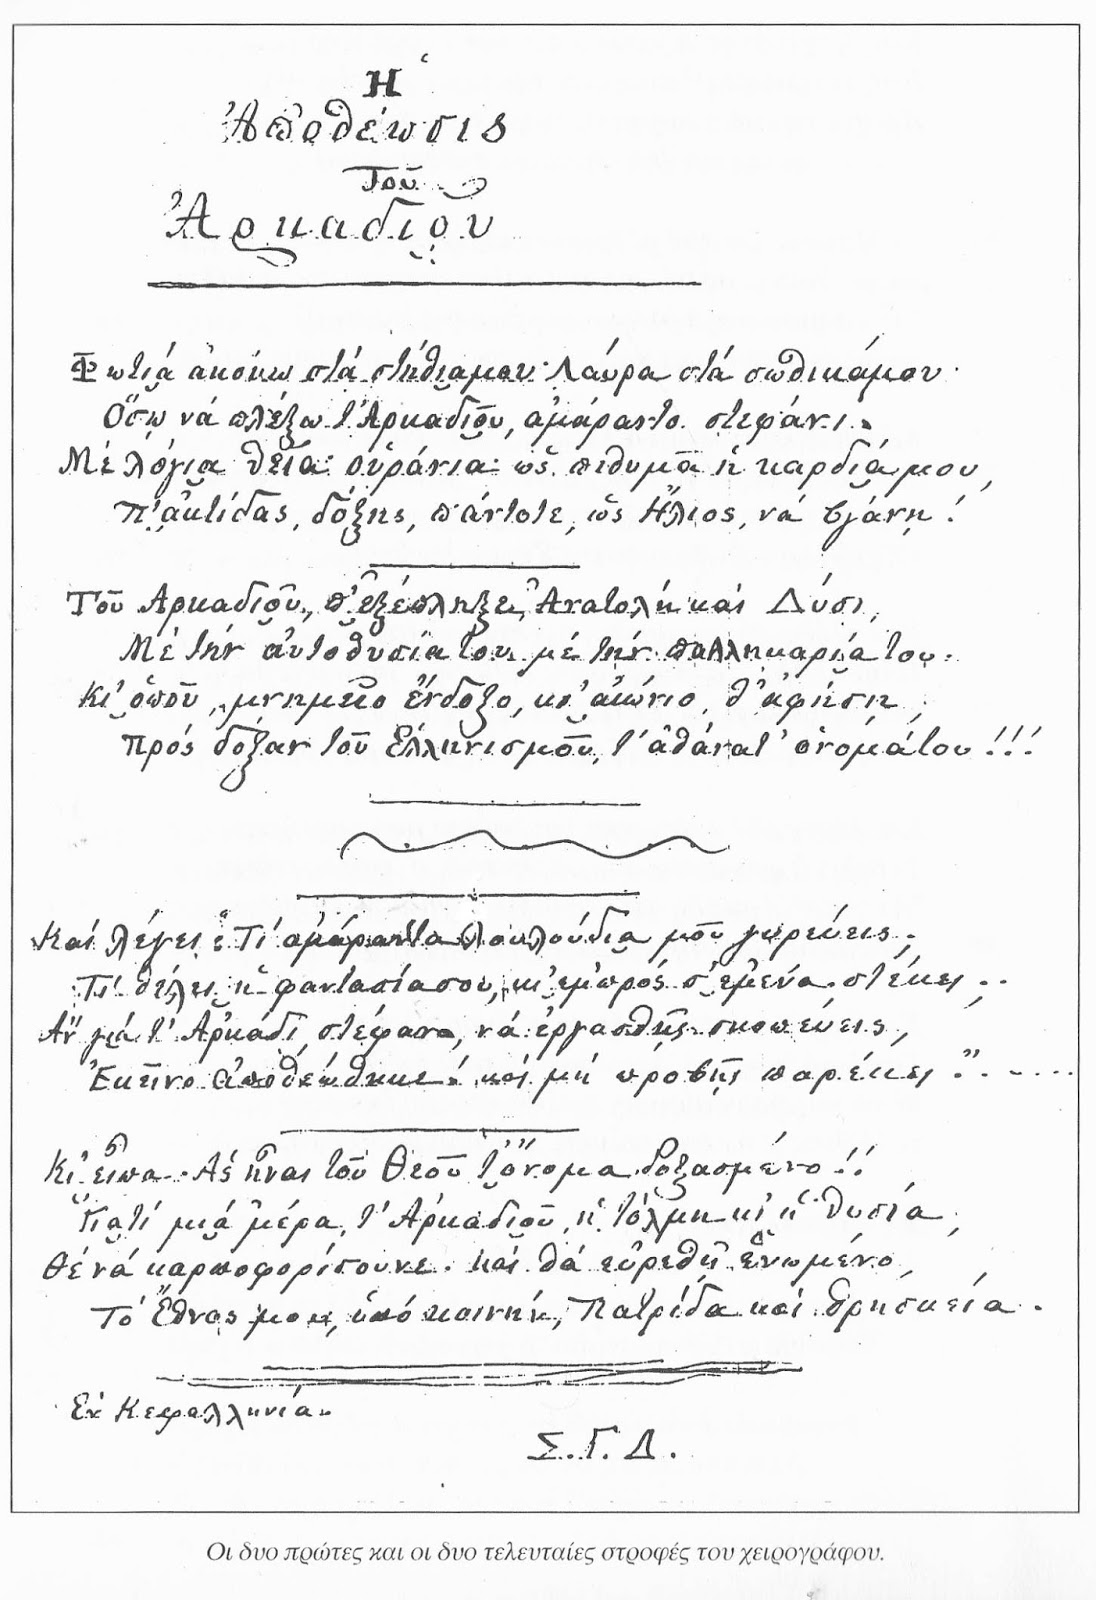 Ἡ
Ἀποθέωσις
Τοῦ
Ἀρκαδιοῦ
Φωτιά ἀκούω στά στήθιαμου· Λαύρα στά σωθικάμου·
Ὅσῳ νά πλέξω τ' Ἀρκαδιοῦ, ἀμάραντο στεφάνι.
Μέ λόγια θεῖα· οὐράνια· ὡς πιθυμᾶ ἡ καρδιάμου,
Π' ἀκτίδας, δόξης, πάντοτε, ὡς Ἥλιος, νά βγάνῃ!
Τοῦ Αρκαδιοῦ, π' ἐξέπληξε, Ἀνατολή καί Δύσι,
Μέ τήν αὐτοθυσίατου μέ τήν παλληκαριάτου.
Κι' ὁποῦ, μνημεῖο ἔνδοξο, κι' αἰώνιο, θ' ἀφήσῃ,
Πρός δόξαν τοῦ Ελληνισμοῦ, τ' ἀθάνατ' ὀνομάτου!!!
Καί λέγει: Τί ἀμάραντα λουλούδια μοῦ γυρεύεις;
Τί θέλει ἡ φαντασίασου, κι' ἐμπρός σ' ἐμένα στέκει;..
Ἄν γιά τ' Αρκάδι, στέφανο, νά ἐργασθῇς σκοπεύεις,
Ἐκεῖνο ἀποθεώθηκε! καί μή προβῇς παρέκει"......
Κι' εἶπα. Ἄς ἦναι τοῦ Θεοῦ τ' ὄνομα δοξασμένο!!
Γιατί μιά μέρα, τ' Ἀρκαδιοῦ, ἡ τόλμη κι' ἡ θυσία,
Θέ νά καρποφορίσουνε. καί θά εὑρεθῇ ἑνωμένο,
Τό Ἔθνος μου, ὑπό κοινήν, Πατρίδα καί θρησκεία.
Ἐν Κεφαλληνίᾳ.
Σ. Γ. Δ.
Οι δυο πρώτες και οι δυο τελευταίες στροφές του χειρογράφου.